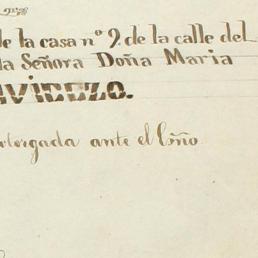 de la casa nº 9. de la calle del
la Señora Doña Maria
VIDEZO.
otorgada ante el Cño